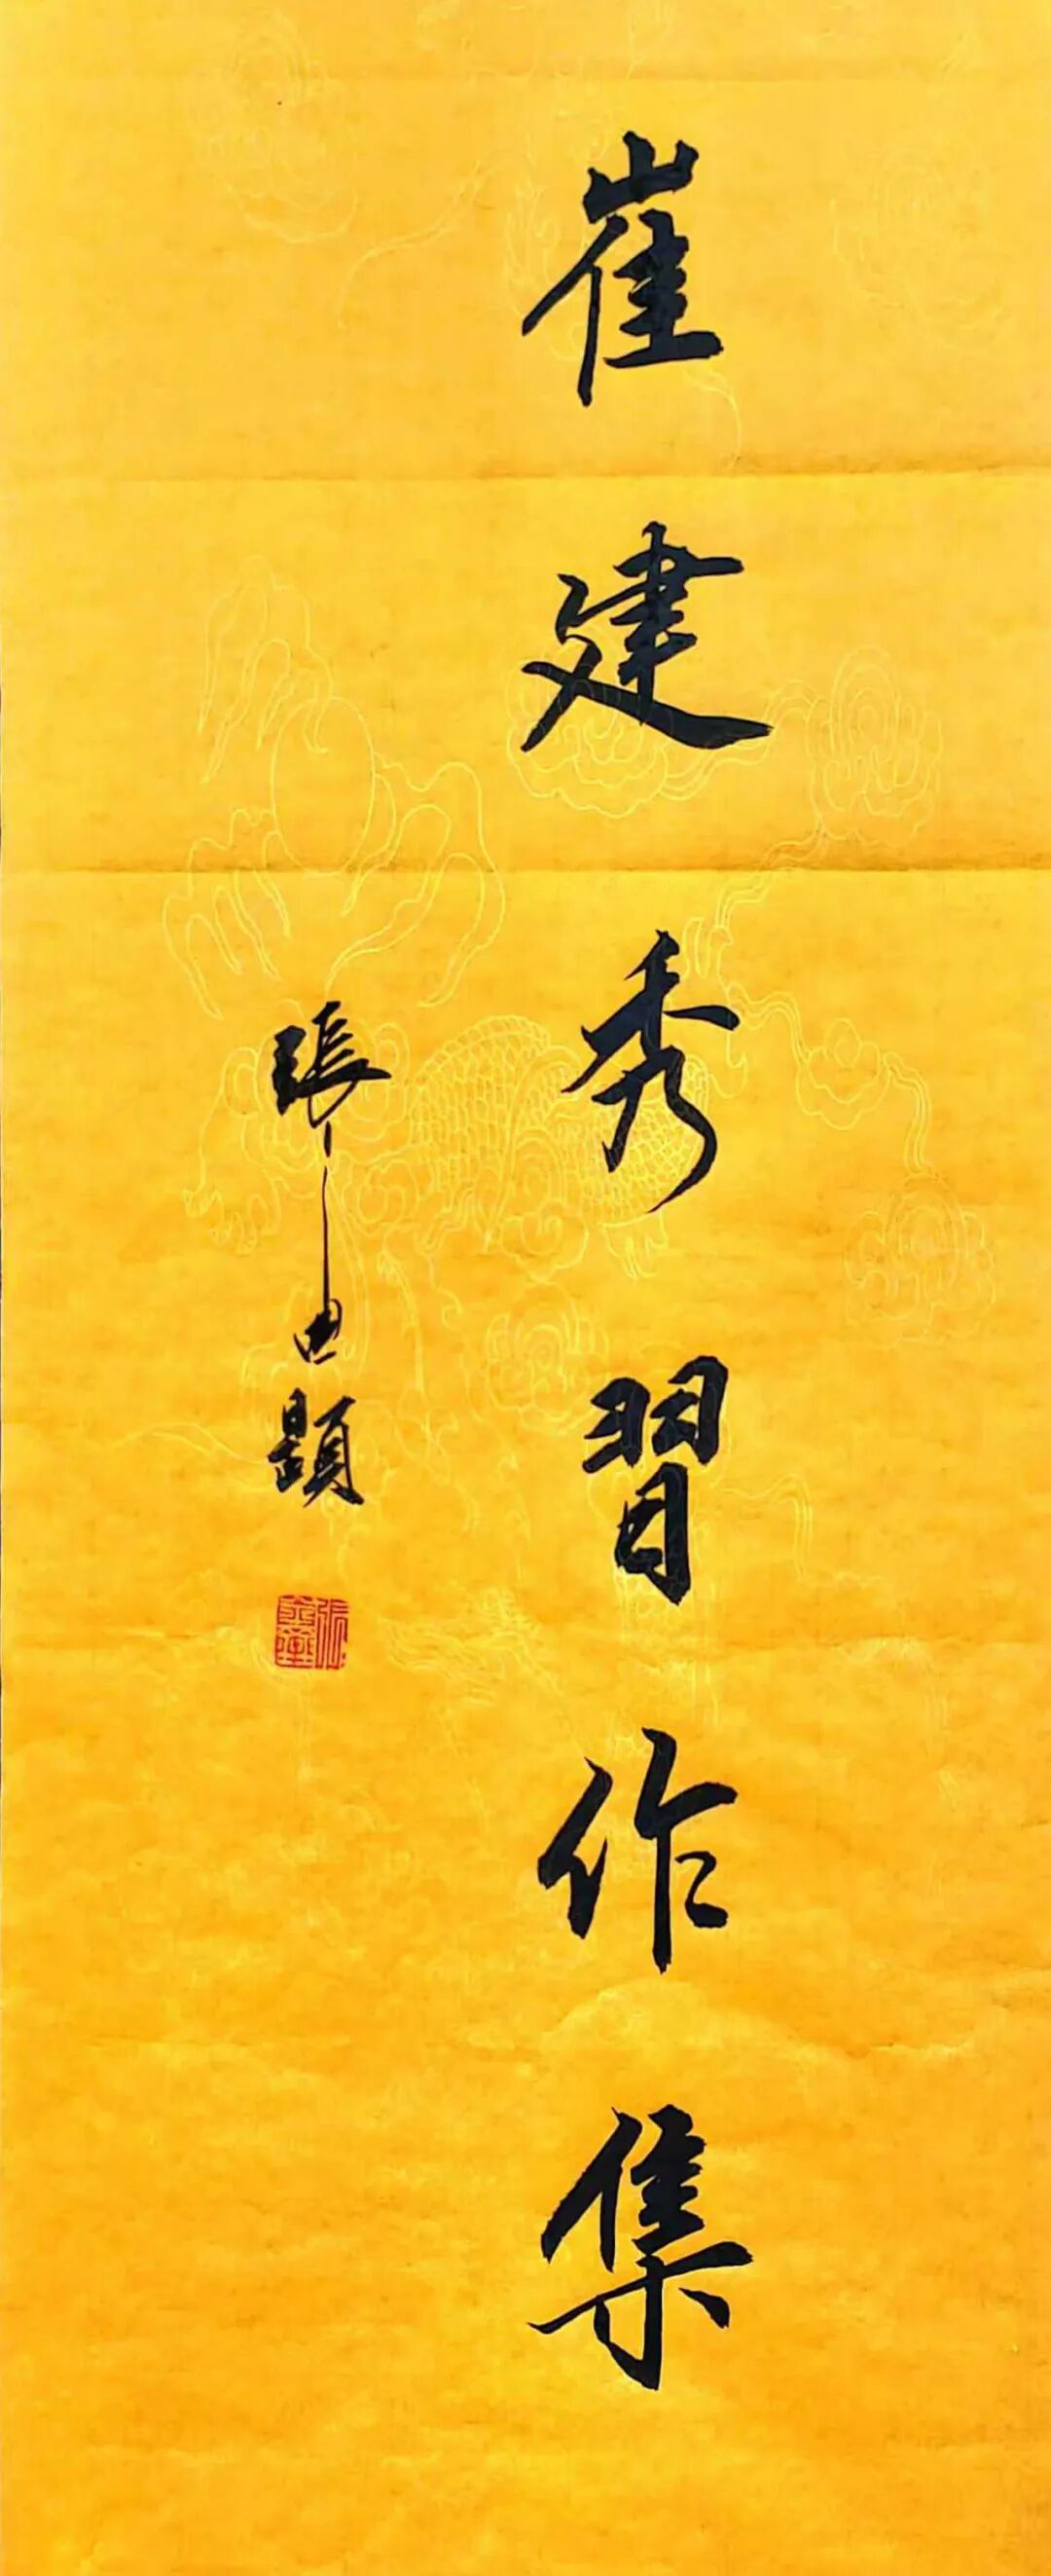 崔建秀習作集
張 題